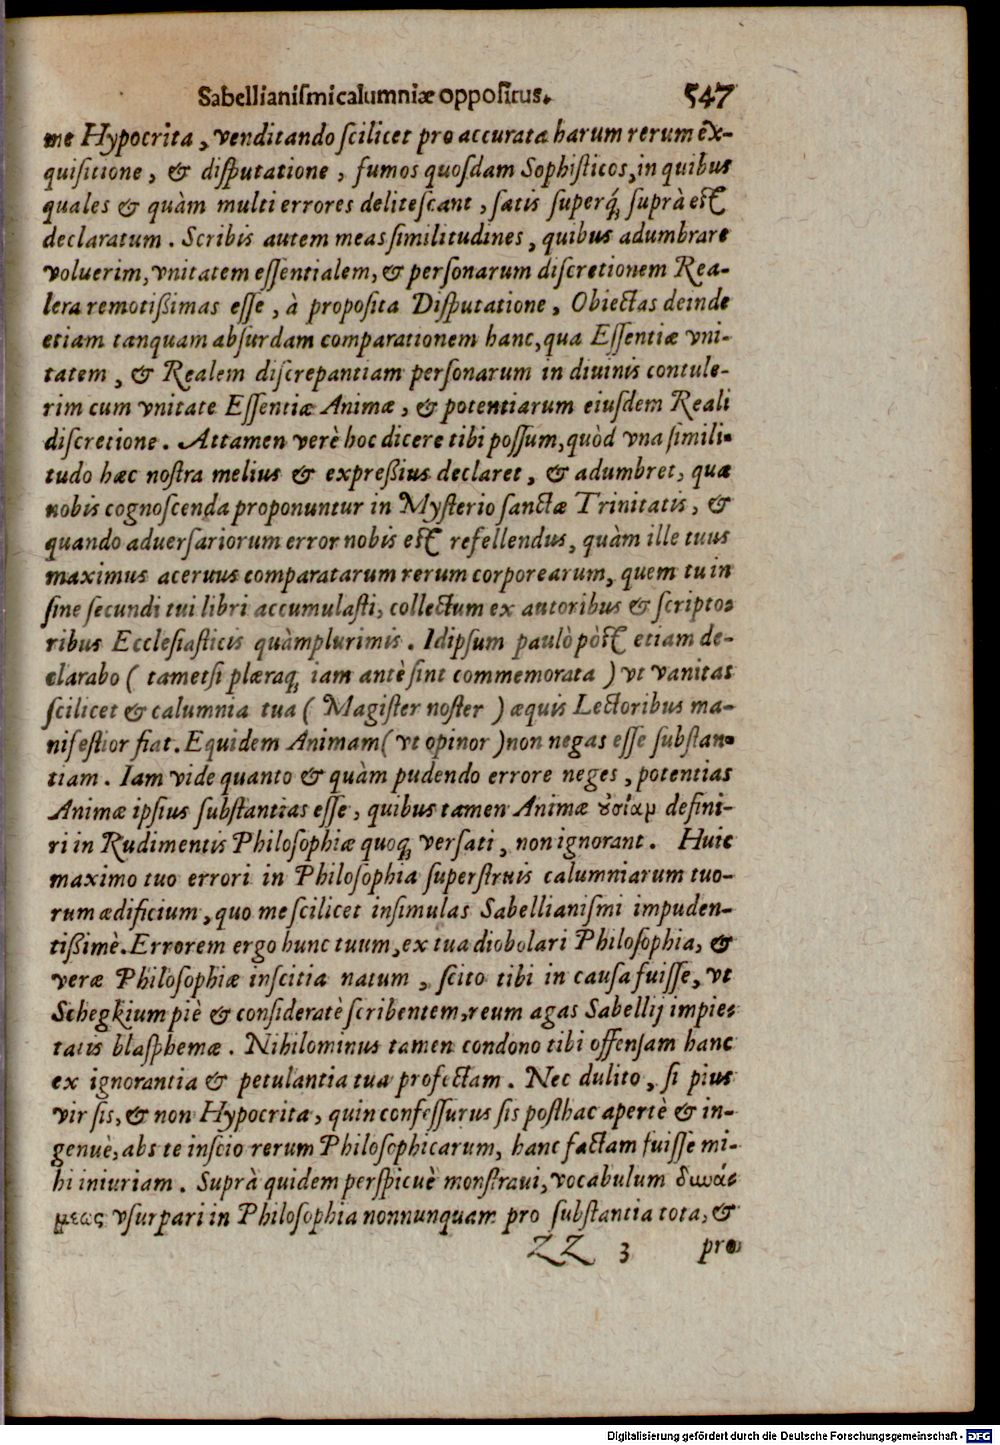 Sabellianiſmi calumniæ oppoſitus. 547
me Hypocrita, venditando ſcilicet pro accurata harum rerum ex-
quiſitione, & diſputatione, fumos quoſdam Sophiſticos, in quibus
quales & quàm multi errores deliteſcant, ſatis superq́; ſuprà eſt
declaratum. Scribis autem meas ſimilitudines, quibus adumbrare
voluerim, vnitatem eſſentialem, & perſonarum diſcretionem Rea-
lera remotißimas eſſe, à propoſita Diſputatione, Obiectas deinde
etiam tanquam abſurdam comparationem hanc, qua Eſſentiæ vni-
tatem, & Realem diſcrepantiam perſonarum in diuinis contule-
rim cum vnitate Eſſentiæ Animæ, & potentiarum eiuſdem Reali
diſcretione. Attamen verè hoc dicere tibi poſſum, quòd vna ſimili-
tudo hæc noſtra melius & expreßius declaret, & adumbret, quæ
nobis cognoſcenda proponuntur in Myſterio ſanctæ Trinitatis, &
quando aduerſariorum error nobis eſt refellendus, quàm ille tuus
maximus aceruus comparatarum rerum corporearum, quem tu in
fine ſecundi tui libri accumulaſti, collectum ex autoribus & ſcripto-
ribus Eccleſiaſticis quàmplurimis. Idipſum paulò pòſt etiam de-
clarabo ( tametſi plæraq; iam antè ſint commemorata ) vt vanitas
ſcilicet & calumnia tua ( Magiſter noſter ) æquis Lectoribus ma-
nifeſtior fiat. Equidem Animam ( vt opinor ) non negas eſſe ſubſtan-
tiam. Iam vide quanto & quàm pudendo errore neges, potentias
Animæ ipſius ſubſtantias eſſe, quibus tamen Animæ ȣ̓σίαμ defini-
ri in Rudimentis Philoſophiæ quoq; verſati, non ignorant. Huic
maximo tuo errori in Philoſophia ſuperſtruis calumniarum tuo-
rum ædificium, quo me ſcilicet inſimulas Sabellianiſmi impuden-
tißimè. Errorem ergo hunc tuum, ex tua diobolari Philoſophia, &
veræ Philoſophiæ inſcitia natum, ſcito tibi in cauſa fuiſſe, vt
Schegkium piè & conſideratè ſcribentem, reum agas Sabellij impie-
tatis blaſphemæ. Nihilominus tamen condono tibi offenſam hanc
ex ignorantia & petulantia tua profectam. Nec dubito, ſi pius
vir ſis, & non Hypocrita, quin confeſſurus ſis poſthac apertè & in-
genuè, abs te inſcio rerum Philoſophicarum, hanc factam fuiſſe mi-
hi iniuriam. Suprà quidem perſpicuè monſtraui, vocabulum δυνά-
μεως vſurpari in Philoſophia nonnunquam pro ſubſtantia tota, &
ZZ 3 pro
Digitalisierung gefördert durch die Deutsche Forschungsgemeinschaft - DFG